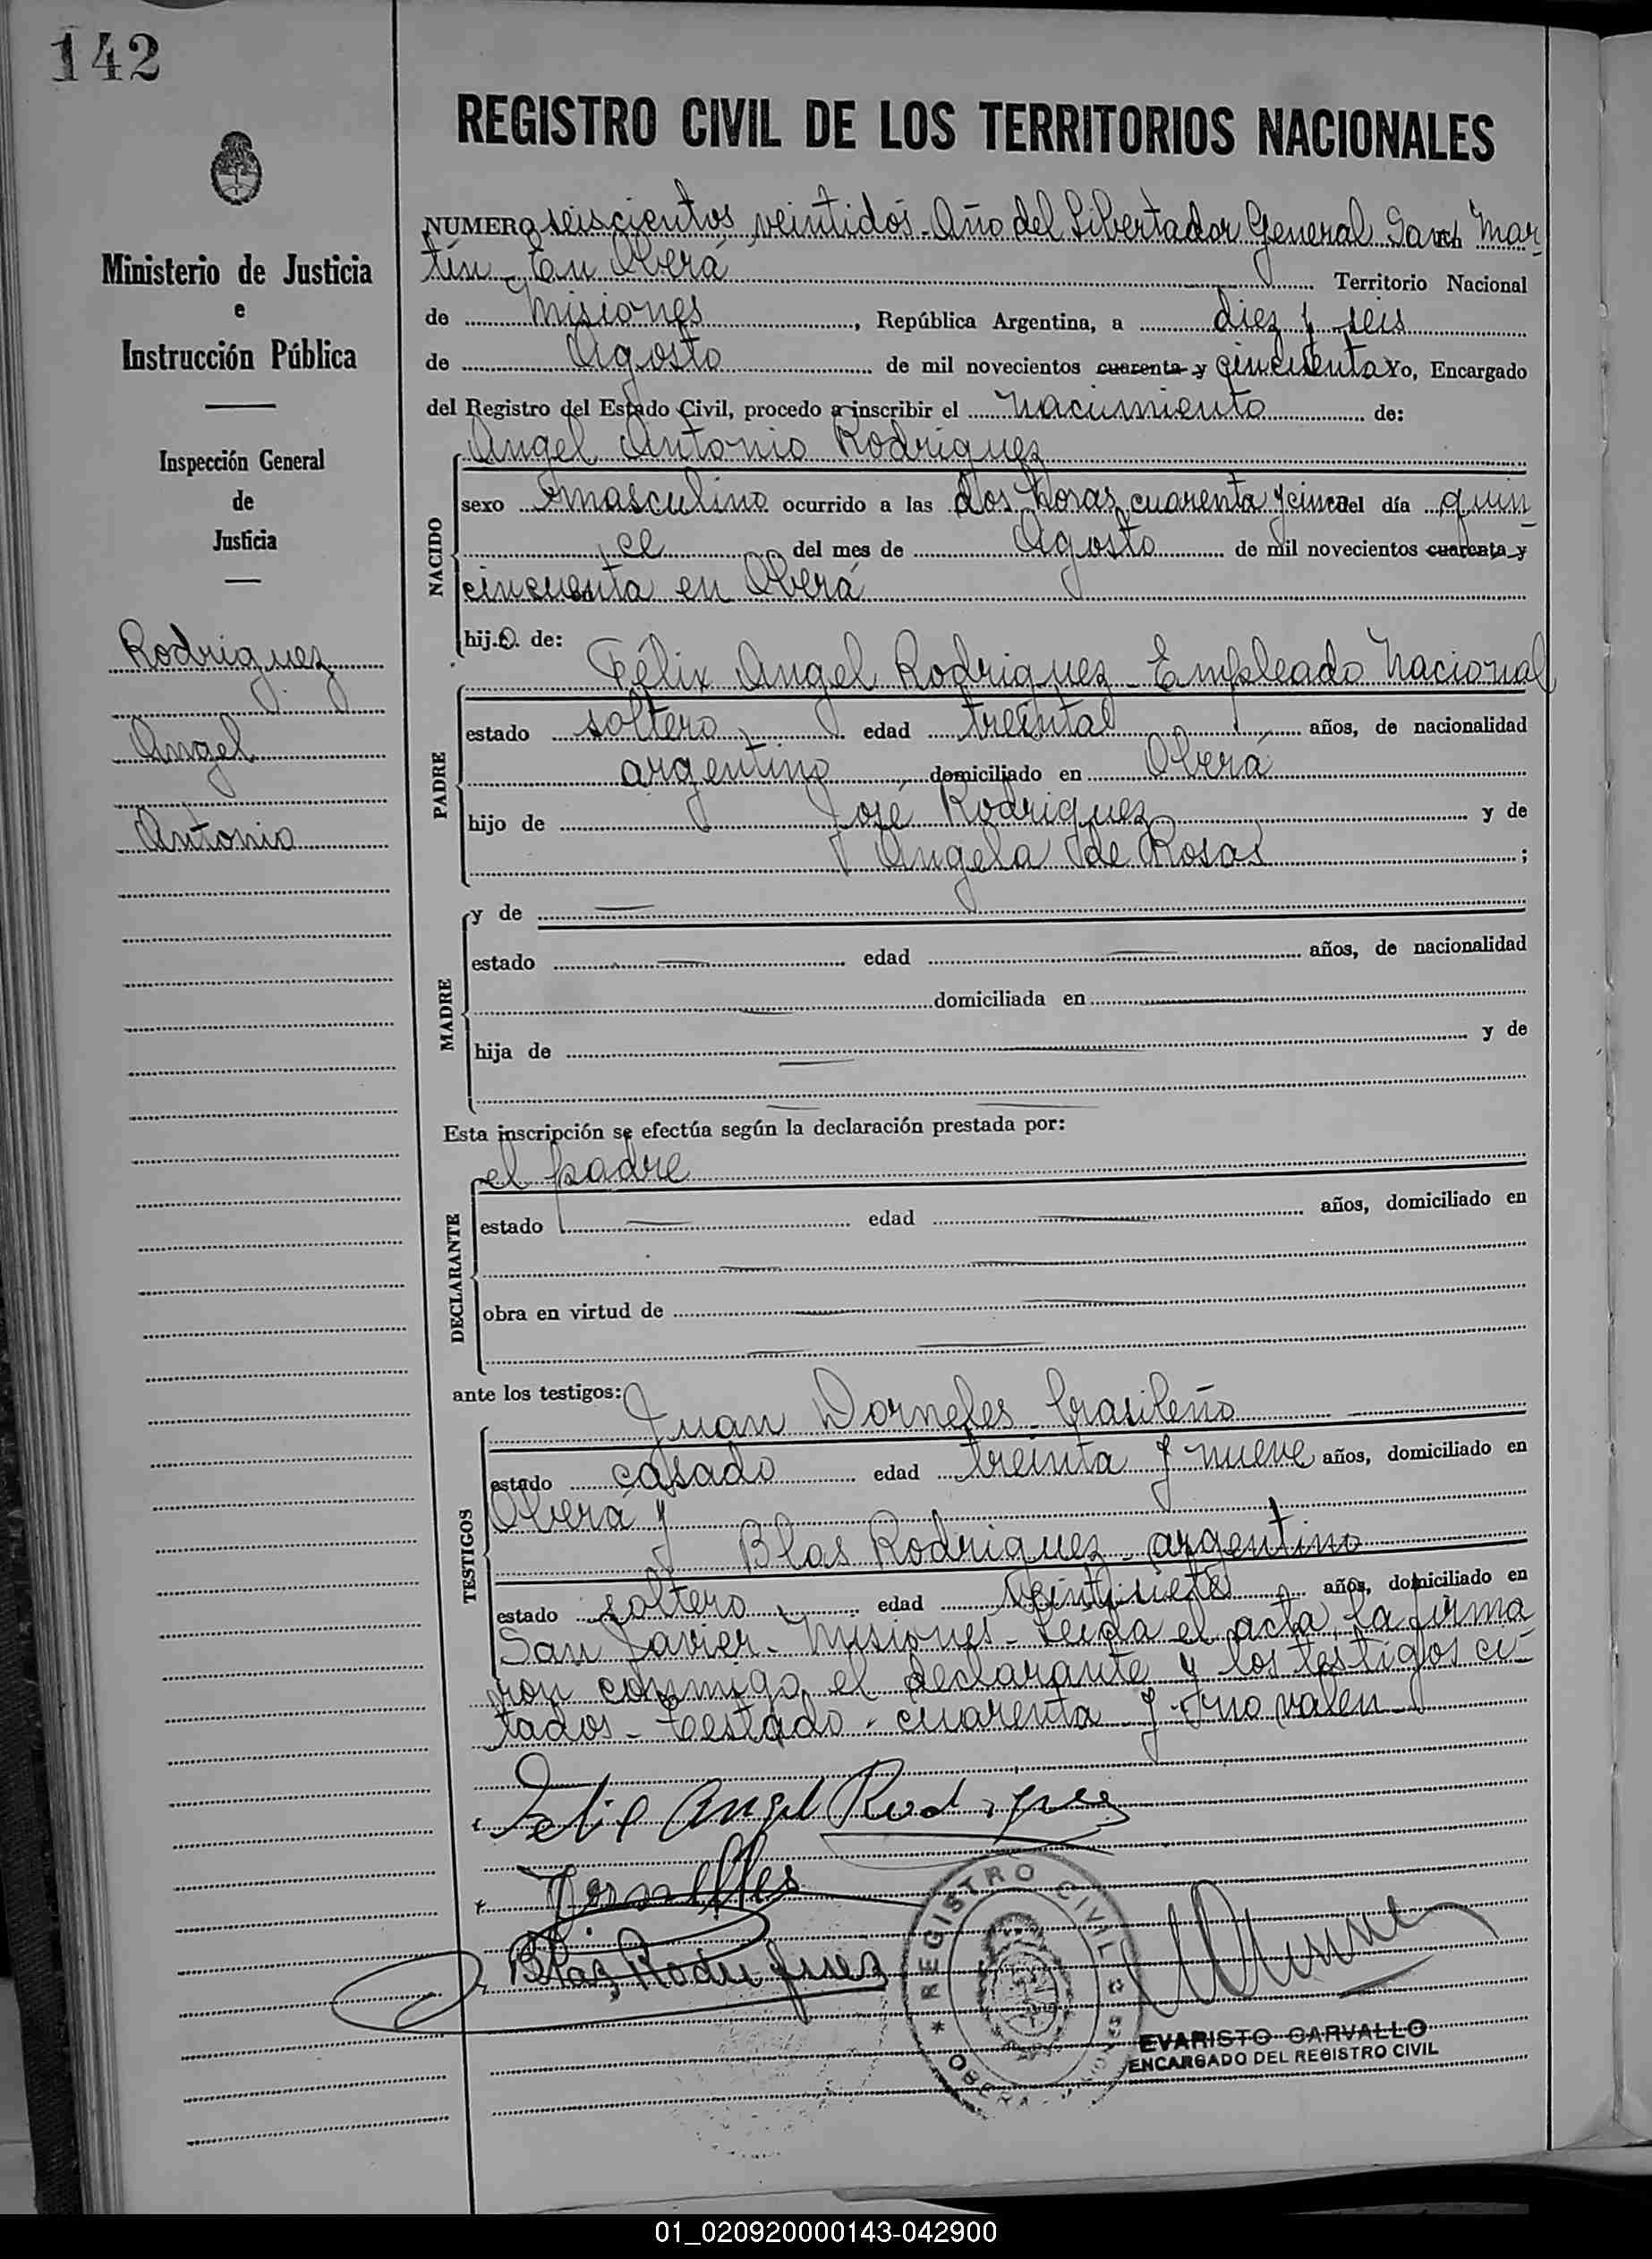 142
REGISTRO CIVIL DE LOS TERRITORIOS NACIONALES
Ministerio de Justicia
e
Instrucción Pública
Inspección General
de
Justicia
Rodriguez
Angel
Antonio
NUMERO seiscientos veintidós - Año del Libertador General San Mar-
tín - En Oberá Territorio Nacional
de Misiones, República Argentina, a diez y seis
de Agosto de mil novecientos cuarenta y cincuenta Yo, Encargado
del Registro del Estado Civil, procedo a inscribir el nacimiento de:
Angel Antonio Rodriguez
NACIDO
sexo masculino ocurrido a las dos horas cuarenta y cinco del día quin-
ce del mes de Agosto de mil novecientos cuarenta y
cincuenta en Oberá
hijo de:
PADRE
Félix Angel Rodriguez - Empleado Nacional
estado soltero edad treinta años, de nacionalidad
argentino domiciliado en Oberá
hijo de José Rodriguez y de
Angela de Rosas;
MADRE
y de
estado edad años, de nacionalidad
domiciliada en
hija de y de
Esta inscripción se efectúa según la declaración prestada por:
DECLARANTE
el padre
estado edad años, domiciliado en
obra en virtud de
ante los testigos:
TESTIGOS
Juan Dorneles - brasileño
estado casado edad treinta y nueve años, domiciliado en
Oberá y
Blas Rodriguez - argentino
estado soltero edad veintisiete años, domiciliado en
San Javier - Misiones - Leida el acta, la firma
ron conmigo el declarante y los testigos ci-
tados - Testado - cuarenta y - valen -
Felix Angel Rodriguez
Dornelles
Blaz Rodriguez
REGISTRO CIVIL
OBERA
EVARISTO CARVALLO
ENCARGADO DEL REGISTRO CIVIL
01_020920000143-042900